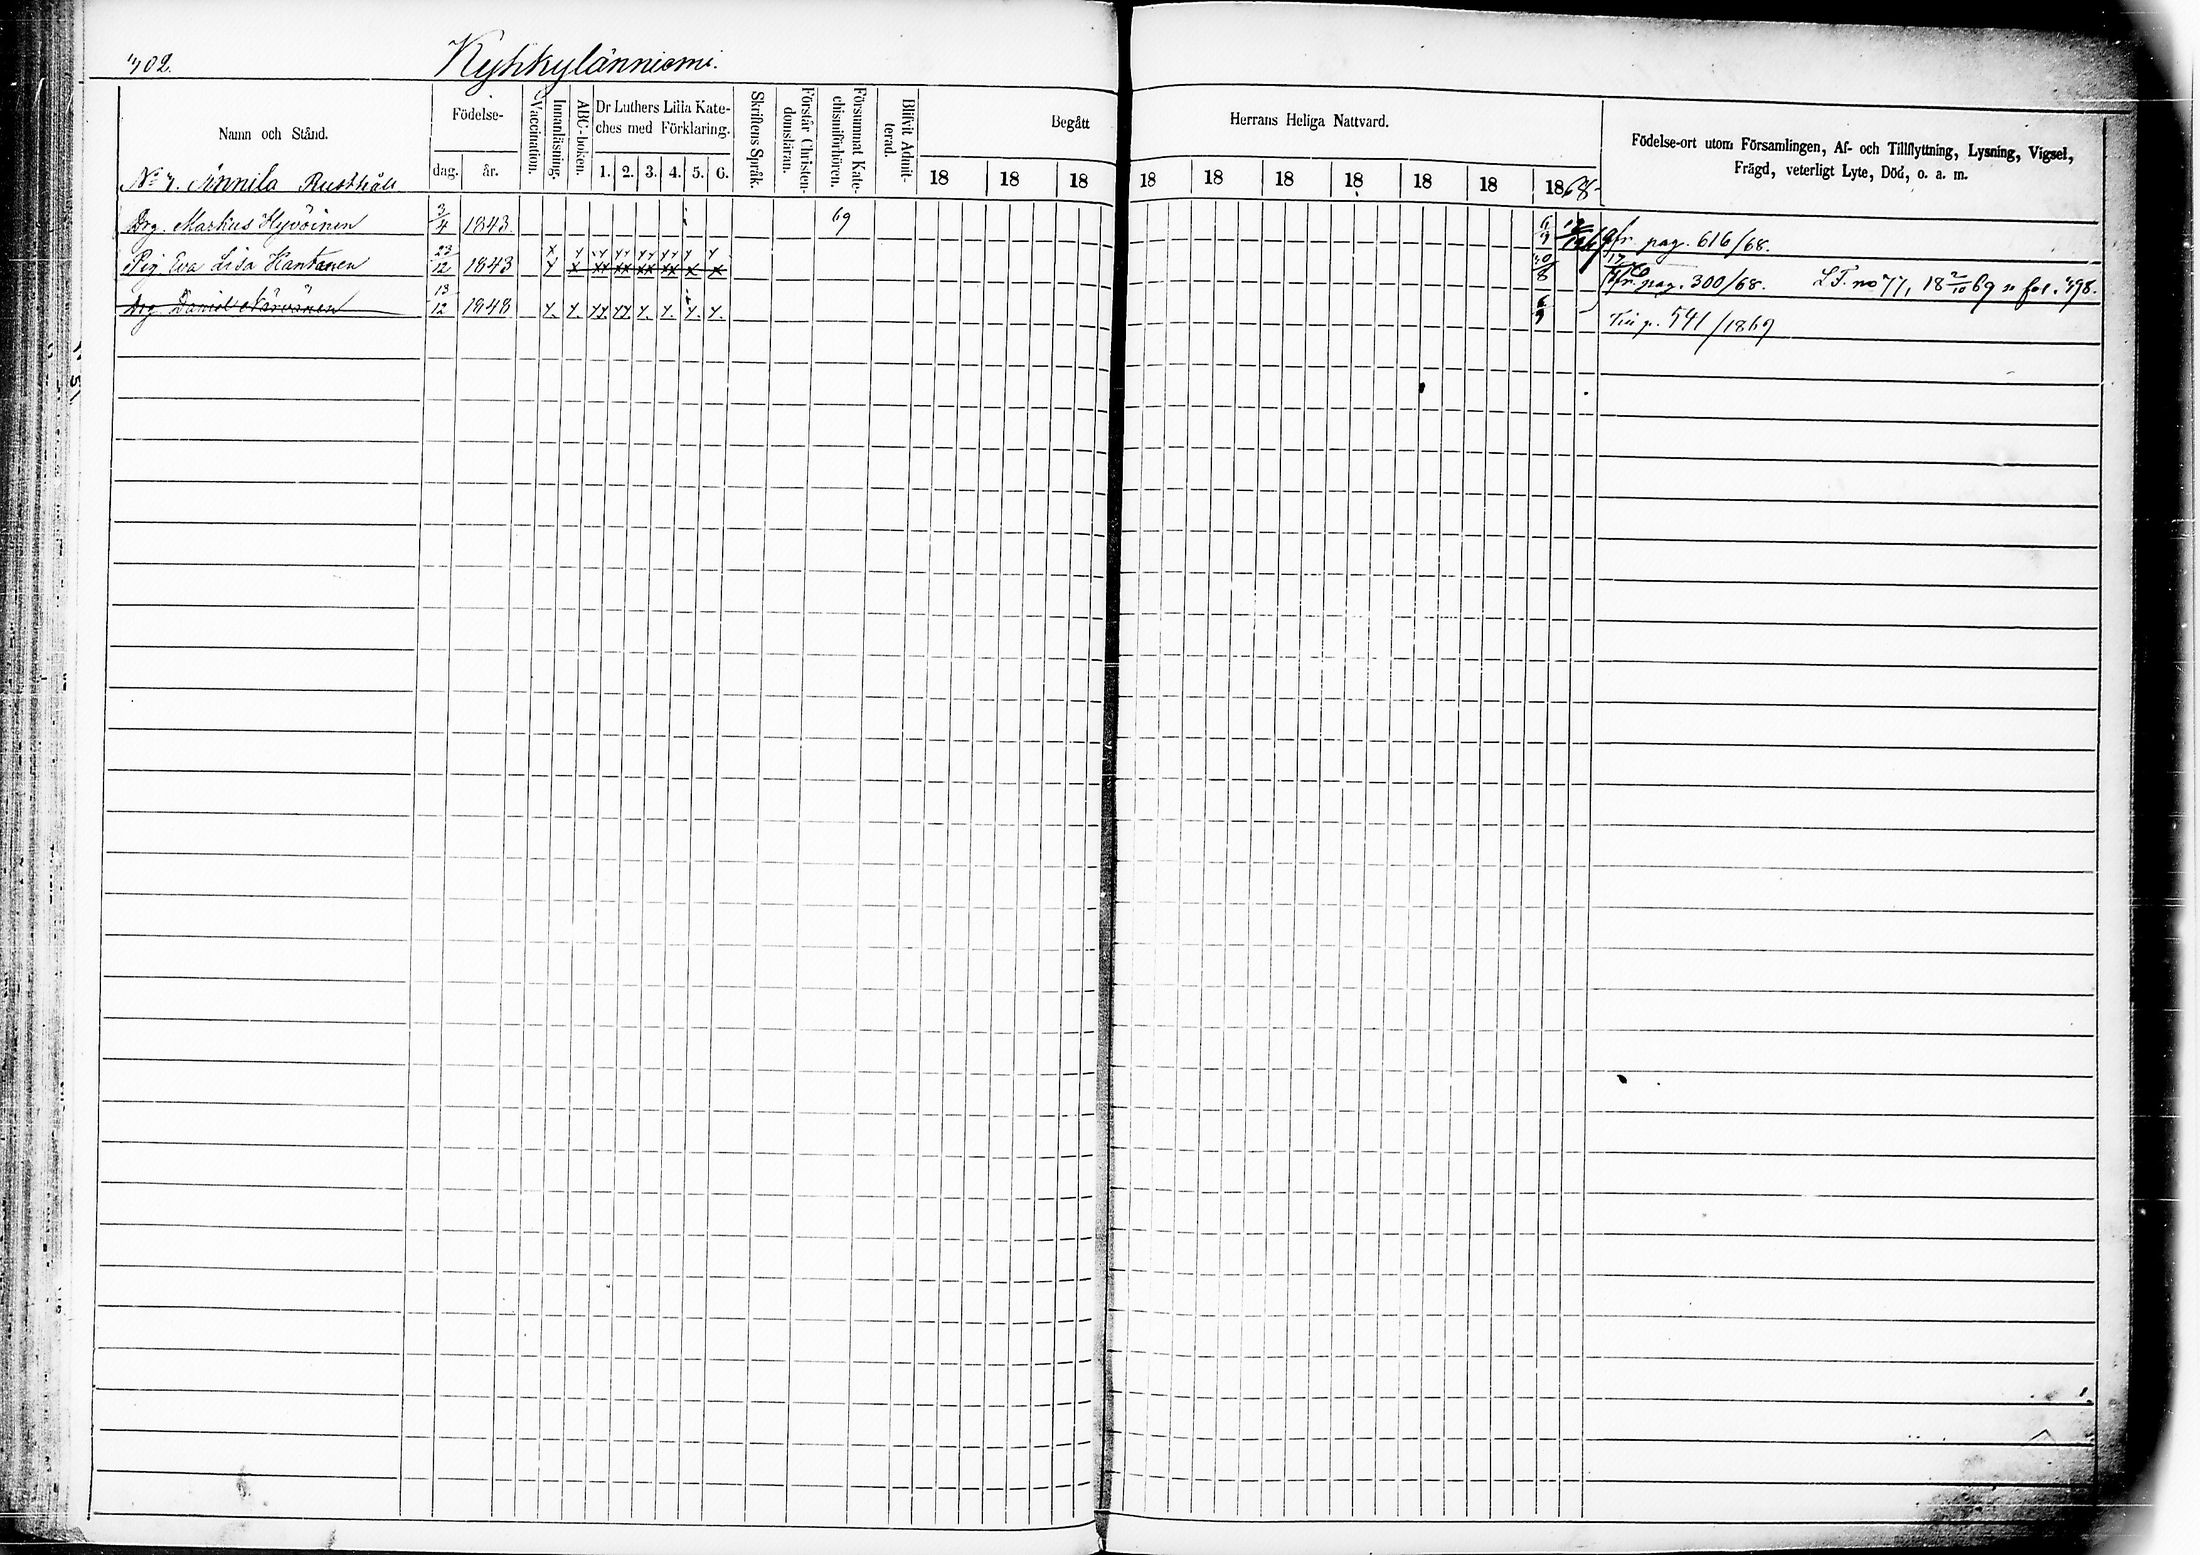 702.
Kyhkylänniemi.
Namn och Stånd.
Födelse-
dag. år.
Vaccination.
Innanläsning.
ABC-boken.
Dr Luthers Lilla Kate-
ches med Förklaring.
1. 2. 3. 4. 5. 6.
Skriftens Språk.
Förstår Christen-
domsläran.
Försummat Kate-
chismiförhören.
Blifvit Admit-
terad.
Begått Herrans Heliga Nattvard.
18 18 18 18 18 18 18 18 18 1868
Födelse-ort utom Församlingen, Af- och Tillflyttning, Lysning, Vigsel,
Frägd, veterligt Lyte, Död, o. a. m.
No 7. Annila Rusthåll
Drg. Markus Hyvöinen 3/4 1843 69 6/9 fr. pag. 616/68.
Pig Eva Lisa Kantanen 23/12 1843 fr. pag. 300/68. L.T. no 77, 18 2/10 69
Drg Daniel 13/12 1848 6/9 p. 541/1869